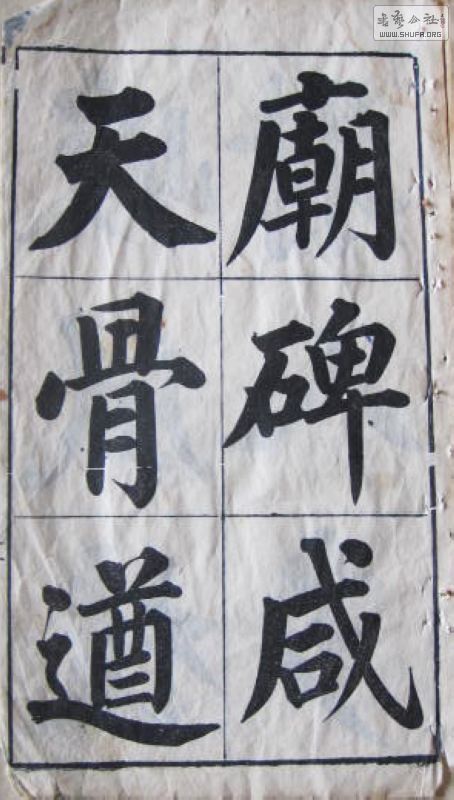 廟碑咸
天骨遒
书藝公社
WWW.SHUFA.ORG